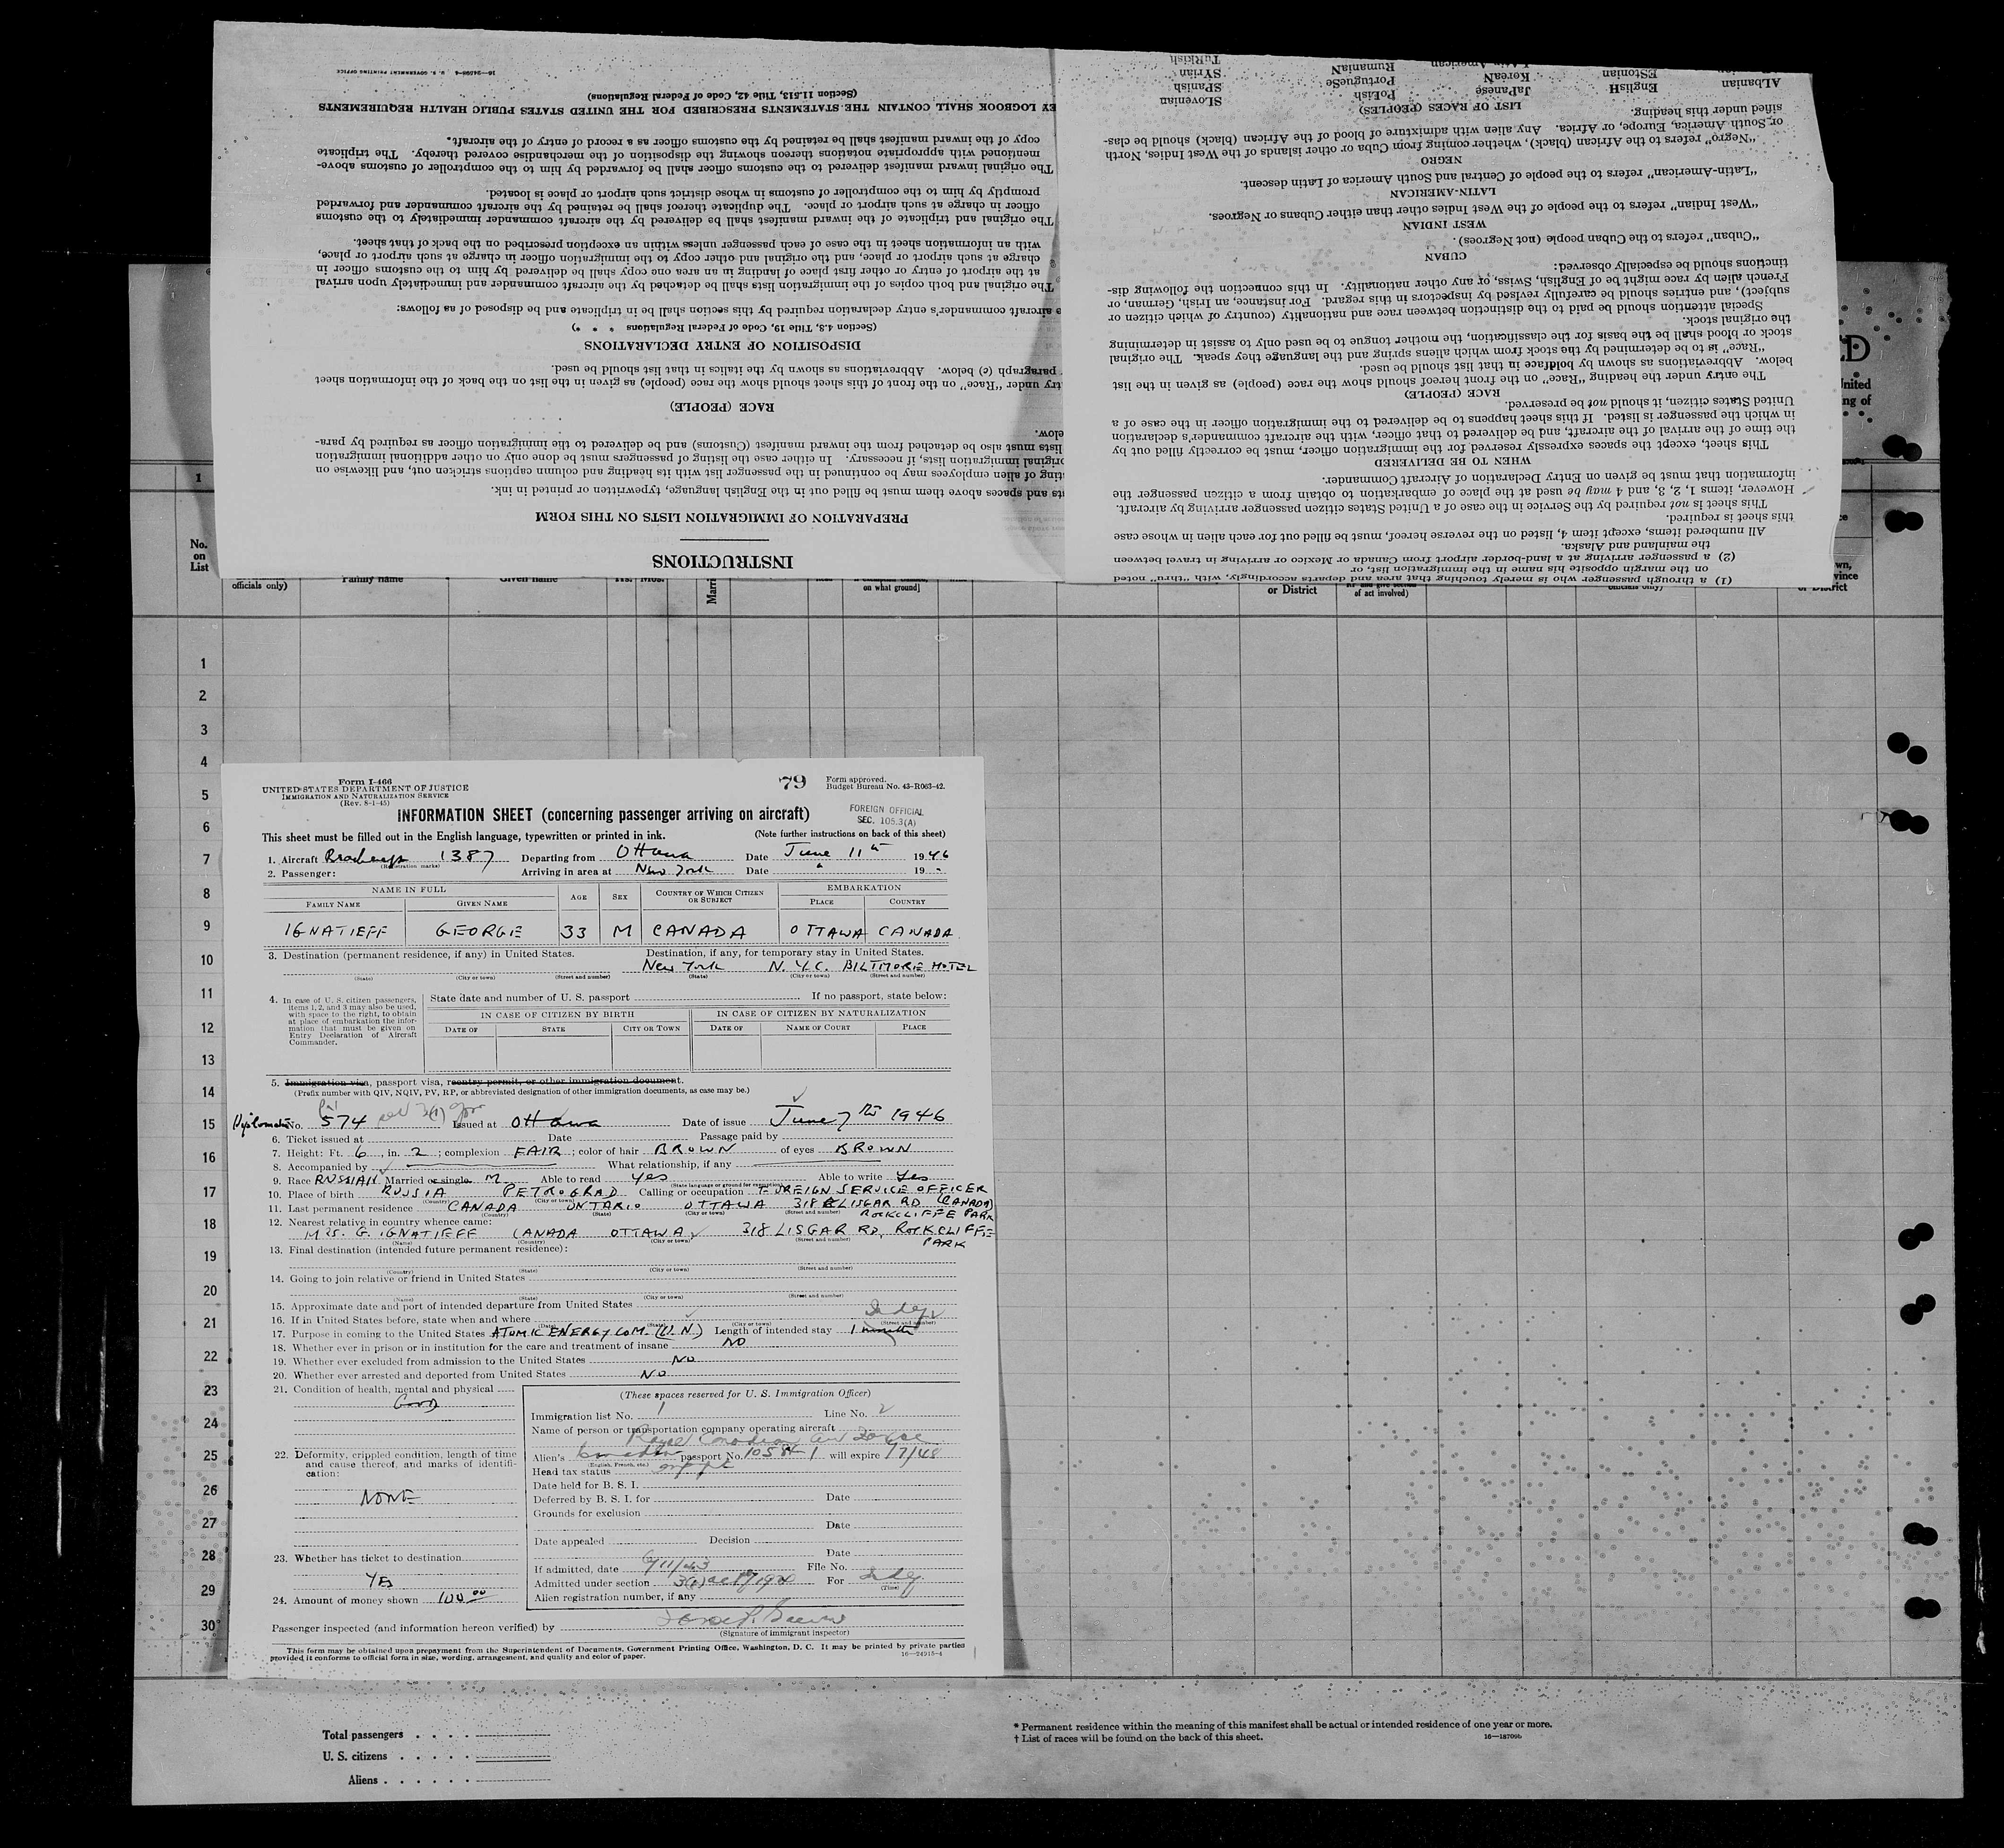 16—24598-4 U. S. GOVERNMENT PRINTING OFFICE
INSTRUCTIONS
PREPARATION OF IMMIGRATION LISTS ON THIS FORM
and spaces above them must be filled out in the English language, typewritten or printed in ink.
of alien employees may be continued in the passenger list with its heading and column captions stricken out, and likewise on
original immigration lists, if necessary. In either case the listing of passengers must be done only on other additional immigration
lists must also be detached from the inward manifest (Customs) and be delivered to the immigration officer as required by para-
below.
RACE (PEOPLE)
under "Race" on the front of this sheet should show the race (people) as given in the list on the back of the information sheet
paragraph (c) below. Abbreviations as shown by the italics in that list should be used.
DISPOSITION OF ENTRY DECLARATIONS
(Section 4.3, Title 19, Code of Federal Regulations * * *)
aircraft commander's entry declaration required by this section shall be in triplicate and be disposed of as follows:
The original and both copies of the immigration lists shall be detached by the aircraft commander and immediately upon arrival
at the airport of entry or other first place of landing in an area one copy shall be delivered by him to the customs officer in
charge at such airport or place, and the original and other copy to the immigration officer in charge at such airport or place,
with an information sheet in the case of each passenger unless within an exception prescribed on the back of that sheet.
The original and triplicate of the inward manifest shall be delivered by the aircraft commander immediately to the customs
officer in charge at such airport or place. The duplicate thereof shall be retained by the aircraft commander and forwarded
promptly by him to the comptroller of customs in whose district such airport or place is located.
The original inward manifest delivered to the customs officer shall be forwarded by him to the comptroller of customs above-
mentioned with appropriate notations thereon showing the disposition of the merchandise covered thereby. The triplicate
copy of the inward manifest shall be retained by the customs officer as a record of entry of the aircraft.
LOGBOOK SHALL CONTAIN THE STATEMENTS PRESCRIBED FOR THE UNITED STATES PUBLIC HEALTH REQUIREMENTS
(Section 11.513, Title 42, Code of Federal Regulations)
(1) a through passenger who is merely touching that area and departs accordingly, with "thru" noted
on the margin opposite his name in the immigration list, or
(2) a passenger arriving at a land-border airport from Canada or Mexico or arriving in travel between
the mainland and Alaska.
All numbered items, except item 4, listed on the reverse hereof, must be filled out for each alien in whose case
this sheet is required.
This sheet is not required by the Service in the case of a United States citizen passenger arriving by aircraft.
However, items 1, 2, 3, and 4 may be used at the place of embarkation to obtain from a citizen passenger the
information that must be given on Entry Declaration of Aircraft Commander.
WHEN TO BE DELIVERED
This sheet, except the spaces expressly reserved for the immigration officer, must be correctly filled out by
the time of the arrival of the aircraft, and be delivered to that officer, with the aircraft commander's declaration
in which the passenger is listed. If this sheet happens to be delivered to the immigration officer in the case of a
United States citizen, it should not be preserved.
RACE (PEOPLE)
The entry under the heading "Race" on the front hereof should show the race (people) as given in the list
below. Abbreviations as shown by Boldface in that list should be used.
"Race" is to be determined by the stock from which aliens spring and the language they speak. The original
stock or blood shall be the basis for the classification, the mother tongue to be used only to assist in determining
the original stock.
Special attention should be paid to the distinction between race and nationality (country of which citizen or
subject), and entries should be carefully revised by inspectors in this regard. For instance, an Irish, German, or
French alien by race might be of English, Swiss, or any other nationality. In this connection the following dis-
tinctions should be especially observed:
CUBAN
"Cuban" refers to the Cuban people (not Negroes).
WEST INDIAN
"West Indian" refers to the people of the West Indies other than either Cubans or Negroes.
LATIN-AMERICAN
"Latin-American" refers to the people of Central and South America of Latin descent.
NEGRO
"Negro" refers to the African (black), whether coming from Cuba or other islands of the West Indies, North
or South America, Europe, or Africa. Any alien with admixture of blood of the African (black) should be clas-
sified under this heading.
LIST OF RACES (PEOPLES)
ALbanian EngliSH JaPanese PoLish SLOvenian
EStonian KoreaN PortugueSe SPanish
RumaniaN SYrian
TuRkish
No.
on
List
officials only) Family name Given name Yrs. Mos. on what ground] or District of act involved) officials only) or District
1
2
3
4
5
6
7
8
9
10
11
12
13
14
15
16
17
18
19
20
21
22
23
24
25
26
27
28
29
30
Form I-466
UNITED STATES DEPARTMENT OF JUSTICE
IMMIGRATION AND NATURALIZATION SERVICE
(Rev. 8-1-45)
79
Form approved.
Budget Bureau No. 43-R063-42.
INFORMATION SHEET (concerning passenger arriving on aircraft)
FOREIGN OFFICIAL
SEC. 105.3(A)
This sheet must be filled out in the English language, typewritten or printed in ink. (Note further instructions on back of this sheet)
1. Aircraft 1387 Departing from Ottawa Date June 11th 1946
(Registration marks)
2. Passenger: Arriving in area at New York Date " 19 "
NAME IN FULL AGE SEX COUNTRY OF WHICH CITIZEN OR SUBJECT EMBARKATION
FAMILY NAME GIVEN NAME PLACE COUNTRY
IGNATIEFF GEORGE 33 M CANADA OTTAWA CANADA
3. Destination (permanent residence, if any) in United States. Destination, if any, for temporary stay in United States.
New York N.Y.C. BILTMORE HOTEL
(State) (City or town) (Street and number) (State) (City or town) (Street and number)
4. In case of U. S. citizen passengers, items 1, 2, and 3 may also be used, with space to the right, to obtain at place of embarkation the information that must be given on Entry Declaration of Aircraft Commander.
State date and number of U. S. passport If no passport, state below:
IN CASE OF CITIZEN BY BIRTH IN CASE OF CITIZEN BY NATURALIZATION
DATE OF STATE CITY OR TOWN DATE OF NAME OF COURT PLACE
5. Immigration visa, passport visa, reentry permit, or other immigration document.
(Prefix number with QIV, NQIV, PV, RP, or abbreviated designation of other immigration documents, as case may be.)
Diplomatic No. 574 Issued at Ottawa Date of issue June 7th 1946
6. Ticket issued at Date Passage paid by
7. Height: Ft. 6, in. 2; complexion FAIR; color of hair BROWN of eyes BROWN
8. Accompanied by What relationship, if any
9. Race RUSSIAN Married or single M Able to read Yes Able to write Yes
(State language or ground for exemption)
10. Place of birth RUSSIA PETROGRAD Calling or occupation FOREIGN SERVICE OFFICER
(Country) (City or town)
11. Last permanent residence CANADA ONTARIO OTTAWA 318 LISGAR RD (CANADA)
(Country) (State) (City or town) (Street and number) ROCKCLIFFE PARK
12. Nearest relative in country whence came:
MRS. G. IGNATIEFF CANADA OTTAWA 318 LISGAR RD, ROCKCLIFFE PARK
(Name) (Country) (City or town) (Street and number)
13. Final destination (intended future permanent residence):
(Country) (State) (City or town) (Street and number)
14. Going to join relative or friend in United States
(Name) (State) (City or town) (Street and number)
15. Approximate date and port of intended departure from United States
16. If in United States before, state when and where
(Date) (State) (City or town) (Street and number)
17. Purpose in coming to the United States ATOMIC ENERGY COM. (U.N.) Length of intended stay 1 month
18. Whether ever in prison or in institution for the care and treatment of insane NO
19. Whether ever excluded from admission to the United States NO
20. Whether ever arrested and deported from United States NO
21. Condition of health, mental and physical
Good
22. Deformity, crippled condition, length of time and cause thereof, and marks of identification:
NONE
23. Whether has ticket to destination
YES
24. Amount of money shown 100 00
(These spaces reserved for U. S. Immigration Officer)
Immigration list No. 1 Line No. 2
Name of person or transportation company operating aircraft
Royal Canadian Air Force
Alien's Canadian passport No. will expire
(English, French, etc.)
Head tax status
Date held for B. S. I.
Deferred by B. S. I. for Date
Grounds for exclusion
Date
Date appealed Decision
Date
If admitted, date File No.
Admitted under section For
(Time)
Alien registration number, if any
Passenger inspected (and information hereon verified) by
(Signature of immigrant inspector)
This form may be obtained upon prepayment from the Superintendent of Documents, Government Printing Office, Washington, D. C. It may be printed by private parties
provided it conforms to official form in size, wording, arrangement, and quality and color of paper. 16—24915-4
Total passengers
U. S. citizens
Aliens
* Permanent residence within the meaning of this manifest shall be actual or intended residence of one year or more.
† List of races will be found on the back of this sheet. 16—18709b